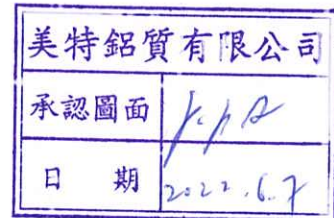 美特鋁質有限公司
承認圖面
日 期 2022.6.7